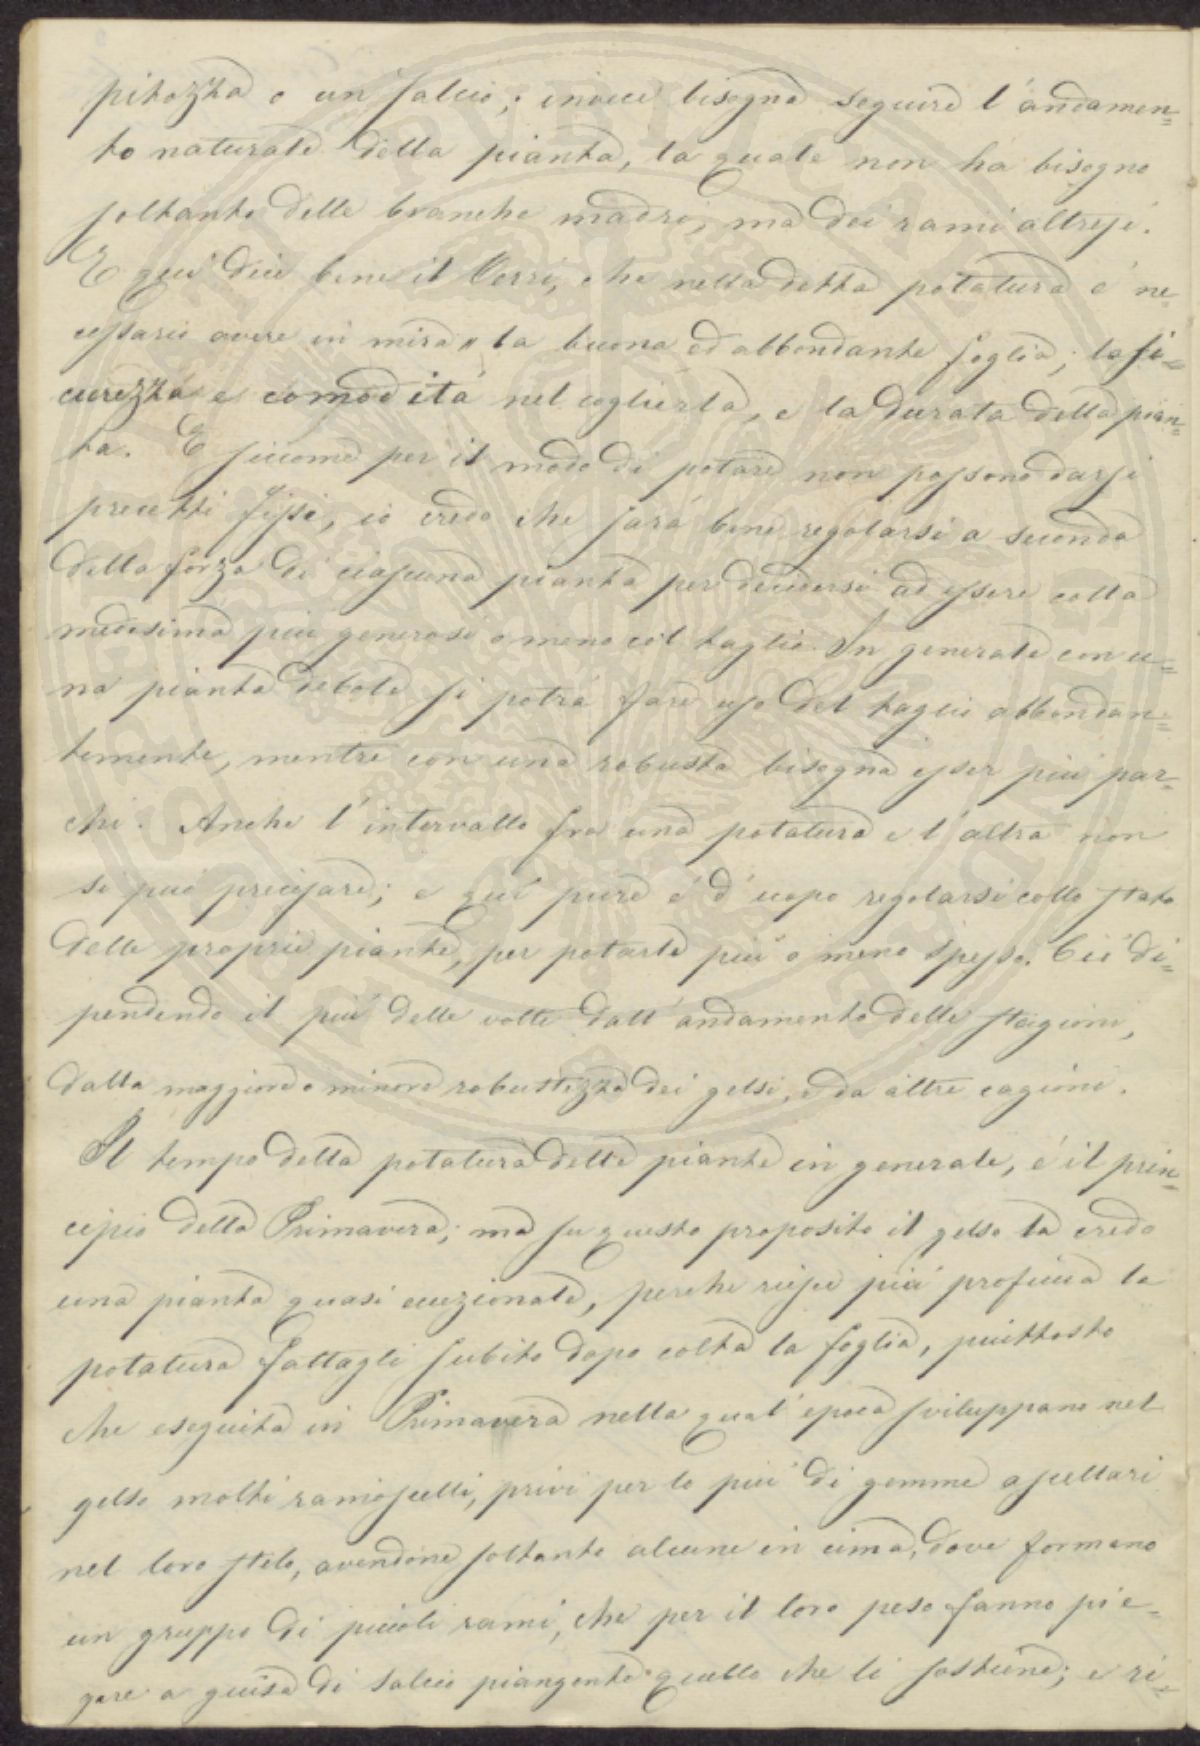 pitozza o un salcio; invece bisogna seguire l'andamen=
to naturale della pianta, la quale non ha bisogno
soltanto delle branche madri, ma dei rami altresì.
E qui dice bene il Verri, che nella detta potatura è ne
cessario avere in mira "la buona ed abbondante foglia; la si=
curezza e comodità nel coglierla, e la durata della pian=
ta. E siccome per il modo di potare non possono darsi
precetti fissi, io credo che sarà bene regolarsi a seconda
della forza di ciascuna pianta per decidersi ad essere colla
medesima più generosi o meno col taglio. In generale con u=
na pianta debole si potrà fare uso del taglio abbondan=
temente, mentre con una robusta bisogna esser più par=
chi. Anche l'intervallo fra una potatura e l'altra non
si può precisare; e quì pure è d'uopo regolarsi collo stato
delle proprie piante, per potarle più o meno spesso. Ciò di=
pendendo il più delle volte dall'andamento delle stagioni,
dalla maggiore o minore robustezza dei gelsi, e da altre cagioni.
Il tempo della potatura delle piante in generale, è il prin=
cipio della Primavera; ma su questo proposito il gelso la credo
una pianta quasi eccezionale, perche riesce più proficua la
potatura fattagli subito dopo colta la foglia, piuttosto
che eseguita in Primavera nella qual'epoca sviluppano nel
gelso molti ramoscelli, privi per lo più di gemme ascellari
nel loro stelo, avendone soltanto alcune in cima, dove formano
un gruppo di piccoli rami, che per il loro peso fanno pie=
gare a guisa di salcio piangente quello che li sostiene; e ri=